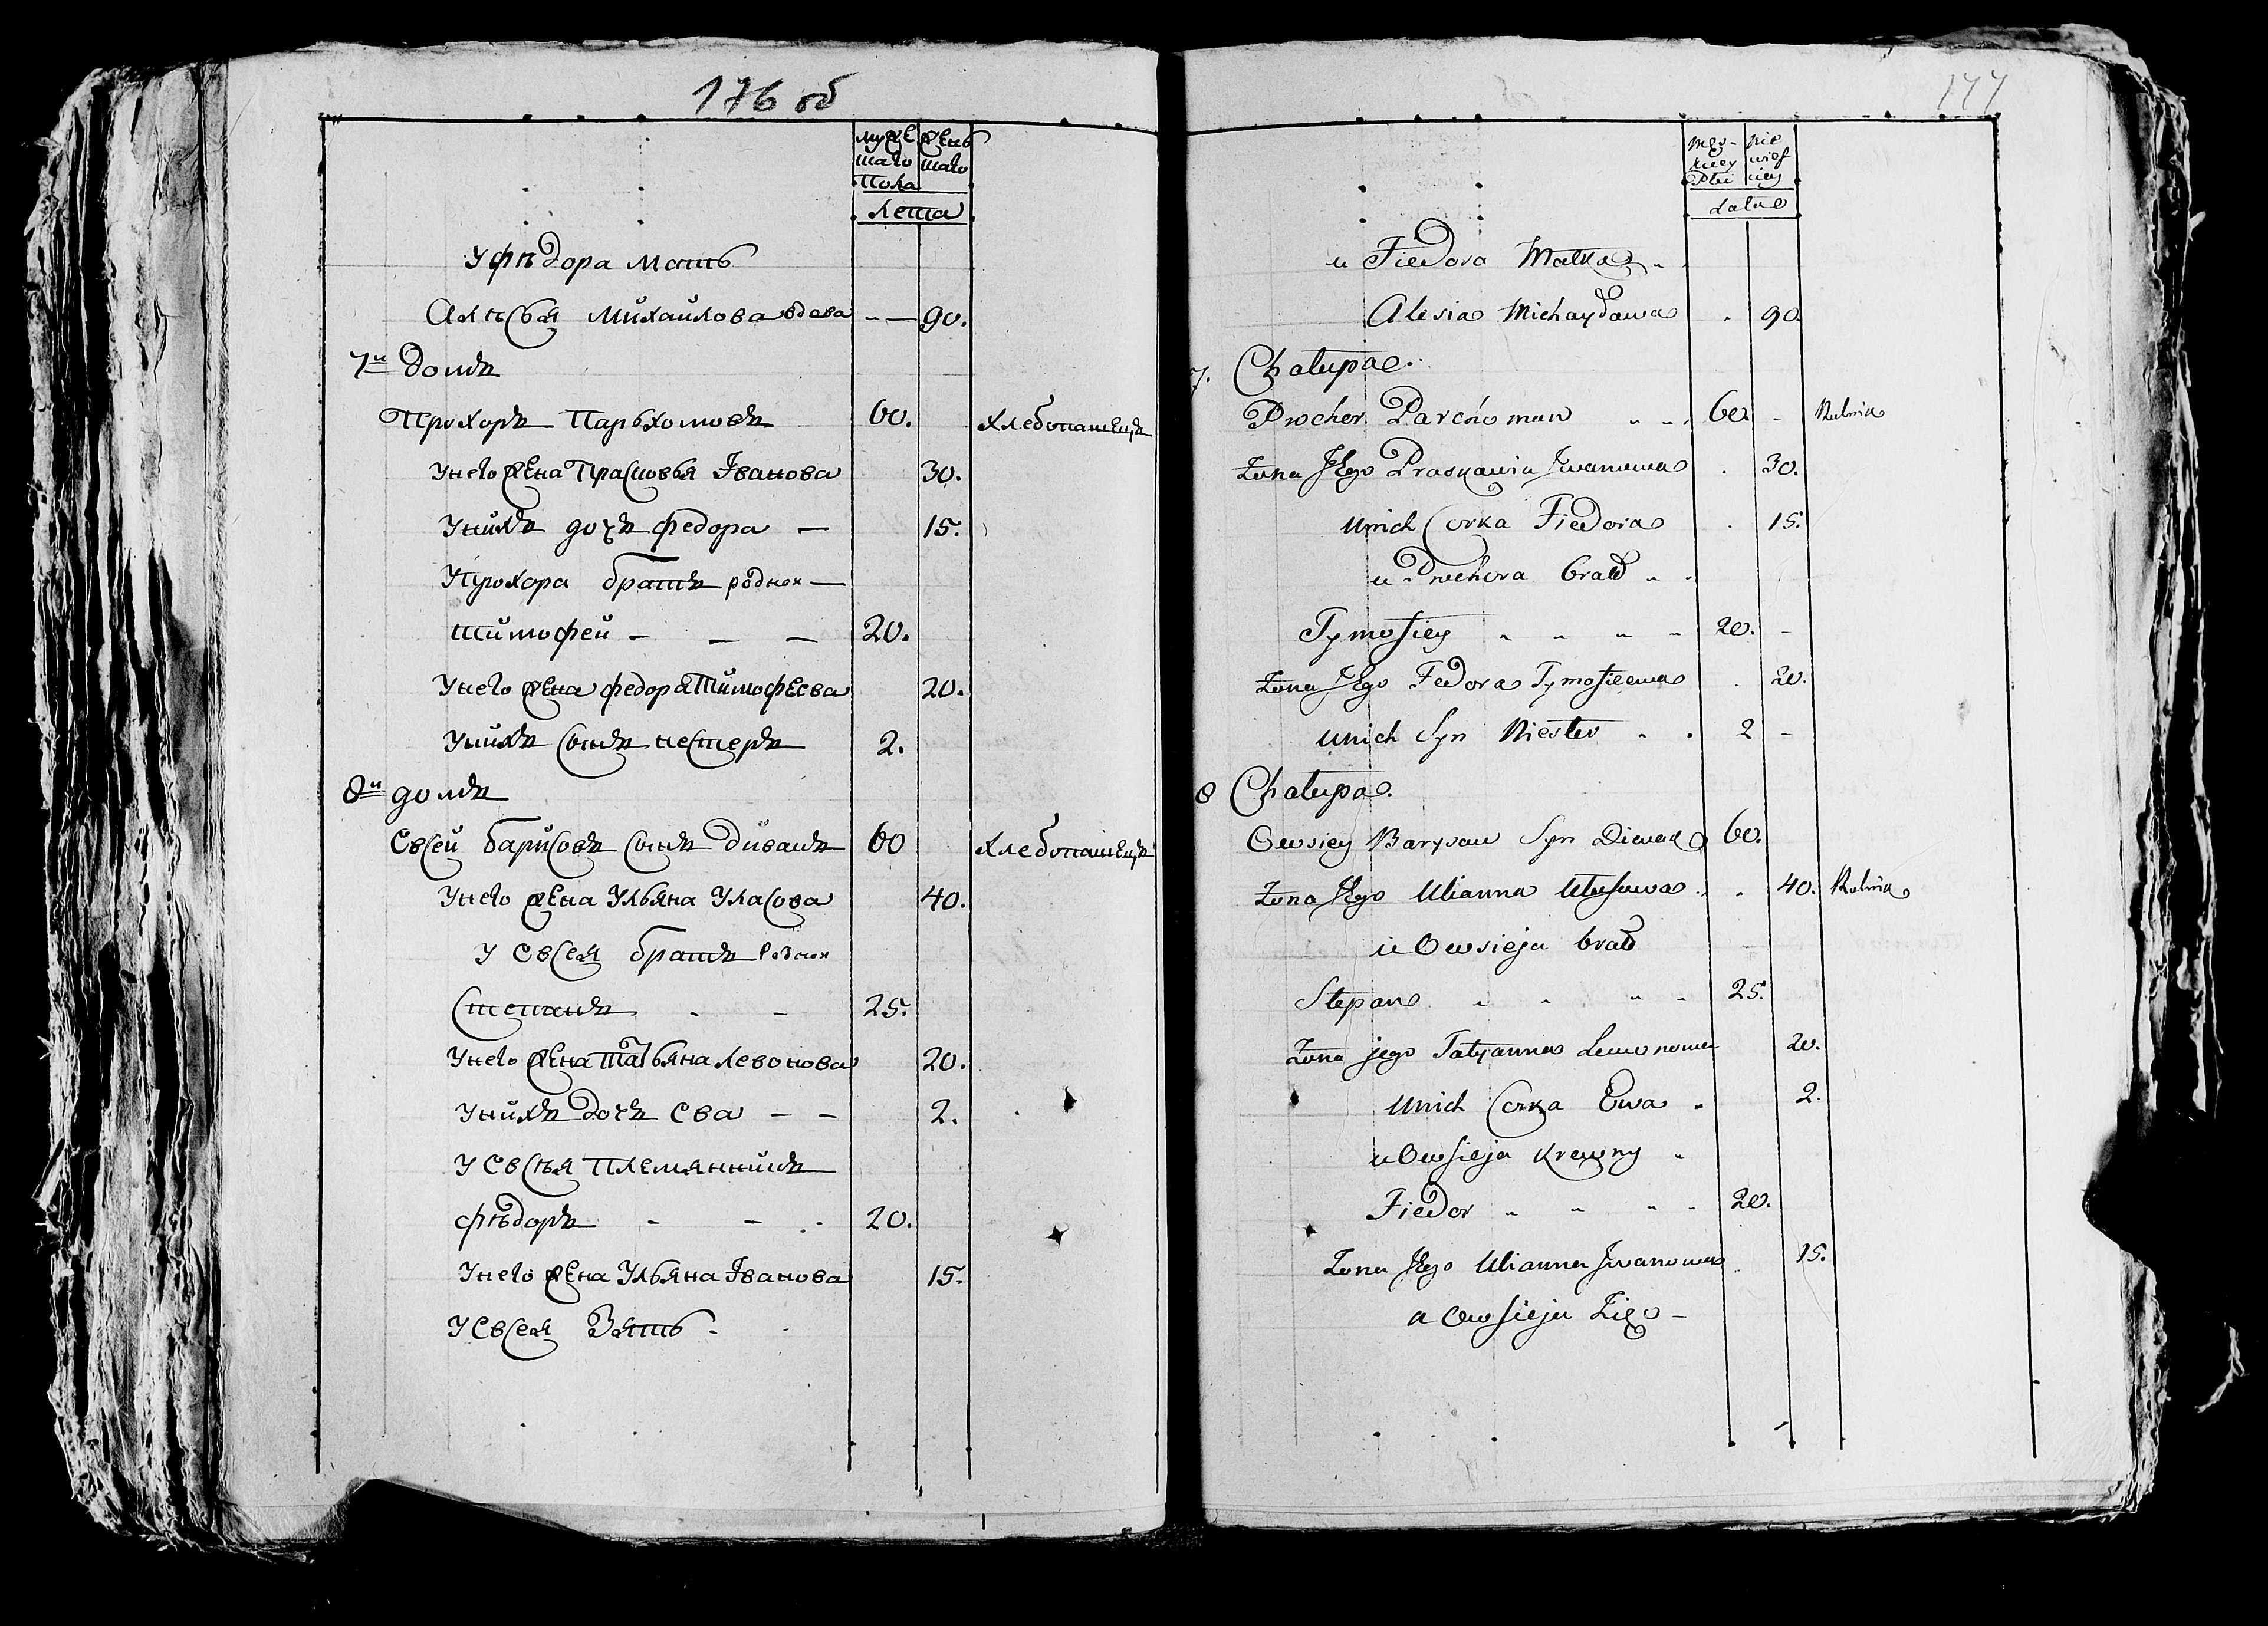 176 об
муже женс
каго каго
пола
лета
У фѣдора мать
Алѣсья михайлова вдова — 90.
7й домъ
Прохоръ Парьхомовъ 60. хлебопашецъ
У него жена Прасковья Іванова 30.
У нихъ дочъ федора — 15.
У Прохора братъ родной —
тимофей — — — 20.
У него жена федора Тимофеева 20.
У нихъ сынъ нестеръ 2.
8й домъ
Евсей барисовъ сынъ дивакъ 60 хлебопашецъ
У него жена Ульяна Уласова 40.
У Евсея братъ родной
Степанъ - - 25.
У него жена татьяна левонова 20.
У нихъ дочъ Ева — — 2.
У Евсѣя племянникъ
фѣдоръ - - - 20.
У него жена Ульяна Іванова 15.
У Евсея Зять -
177
męz-
kiey
Płci
Lata
u Fiedora Matka
Alesia Michayława 90.
7. Chałupa.
Procher Parchomau 60. - Rolnik
Zona Jego Praskawia Iwanowa 30.
u nich Corka Fiedora 15.
u Prochora brat
Tymofiey 20. -
Zona Jego Fedora Tymofieewa 20.
u nich Syn Niester 2 -
8 Chałupa.
Owsiey Barysau Syn Diwak 60.
Zona Jego Ulianna Ułasowa 40. Rolnik
u Owsieja brat
Stepan 25.
Zona jego Tatyanna Lewonowa 20.
u nich Corka Ewa 2.
u Owsieja Krewny
Fiedor 20.
Zona Jego Ulianna Iwanowa 15.
u Owsieja Zięc -